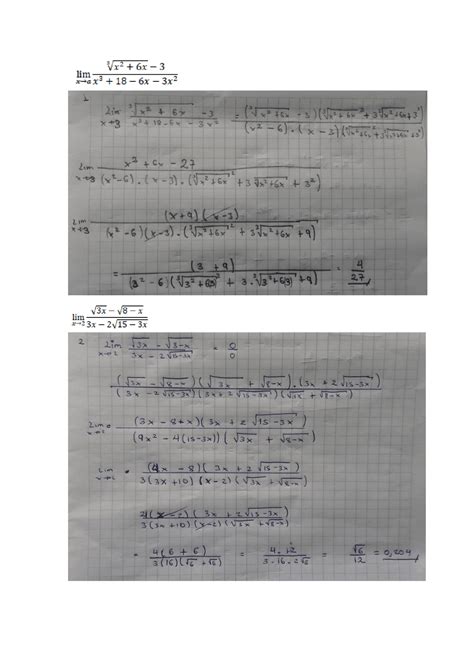 lim x→a (∛(x² + 6x) − 3)/(x³ + 18 − 6x − 3x²)
1
Lim x→3 (∛(x² + 6x) − 3)/(x³ + 18 − 6x − 3x²) = ((∛(x² + 6x) − 3)(∛(x² + 6x)² + 3∛(x² + 6x) + 3²))/((x² − 6) · (x − 3)(∛(x² + 6x)² + 3∛(x² + 6x) + 3²))
Lim x→3 (x² + 6x − 27)/((x² − 6) · (x − 3) · (∛(x² + 6x)² + 3∛(x² + 6x) + 3²))
Lim x→3 ((x + 9)(x − 3))/((x² − 6)(x − 3) · (∛(x² + 6x)² + 3∛(x² + 6x) + 9))
= (3 + 9)/((3² − 6)(∛(3² + 63)² + 3 · ∛(3² + 63) + 9)) = 4/27
lim x→2 (√3x − √(8 − x))/(3x − 2√(15 − 3x))
2 Lim x→2 (√3x − √(3−x))/(3x − 2√(15−3x)) = 0/0
((√3x − √(8−x))(√3x + √(8−x)) · (3x + 2√(15−3x)))/((3x − 2√(15−3x))(3x + 2√(15−3x))(√3x + √(8−x)))
Lim x→2 ((3x − 8 + x)(3x + 2√(15−3x)))/((9x² − 4(15−3x))(√3x + √(8−x)))
Lim x→2 ((4x − 8)(3x + 2√(15−3x)))/(3(3x + 10)(x − 2)(√3x + √(8−x)))
(4(x − 2)(3x + 2√(15−3x)))/(3(3x + 10)(x−2)(√3x + √(8−x)))
= (4(6 + 6))/(3(16)(√6 + √6)) = (4 · 12)/(3 · 16 · 2√6) = √6/12 = 0,204